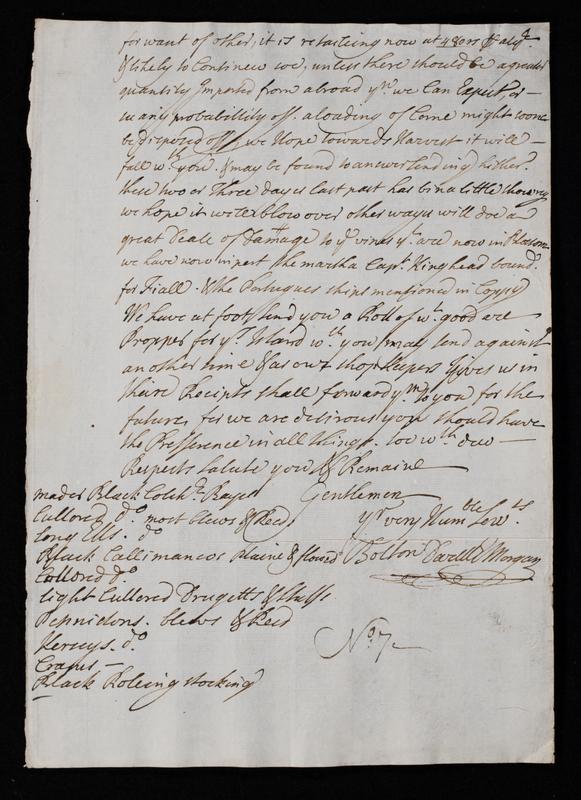 for want of other, it is retailing now at
& likely to Contineu soe, unless there should be a greater
quantity Imported from abroad yn we Can Expect, or —
in any probabillity off a loading of Corne might soone
be disposed off, we Hope towards Harvest it will —
fall wth you & may be found to answer sending hither.
these two or Three dayes last past has bin a little showrey
we hope it will blow over other ways will doe a
great Deale of Damage to ye vines yt are now in Blosom
we have now in port the martha Capt. Kinghead bound.
for Fiall. & the Portugues ships mentioned in Coppy
We have at foot send you a Roll of wt. good are
Propper for ys Island wth you may send against
another time & as our shop keepers Gives us in
theire Receipts shall forward ym to you for the
future, for we are desirous you should have
the Prefference in all things. soe wth dew —
Respects salute you & Remaine
Gentlemen
yr very Humble Servts
Bolton Darell & Morgan
made Black Colchr Bayes
Cullored do. most blews & Reed
Long Ells. do
Black Callimancos Plaine & flowed
Cullored do
light Cullored Drugetts & stuffs
Pennistons. blews & Reed
Kerseys. do
Crapes —
Black Roleing stockings
No. 7